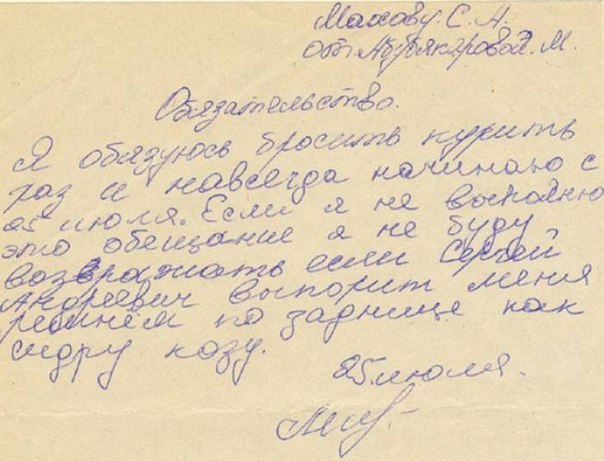 Махову. С. А.
от Абдряхаровой. М.
Обязательство.
Я обязуюсь бросить курить
раз и навсегда начинаю с
25 июля. Если я не восполню
это обещание я не буду
возвражать если Сергей
Андреевич выпорит меня
ремнём по заднице как
сидру козу.
25 июля.